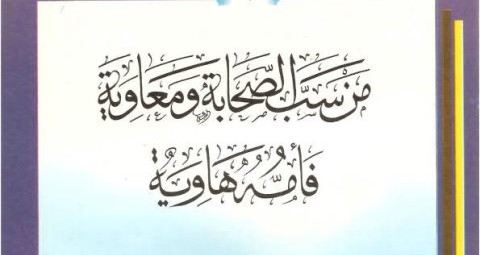 من سب الصحابة ومعاوية
فأمه هاوية